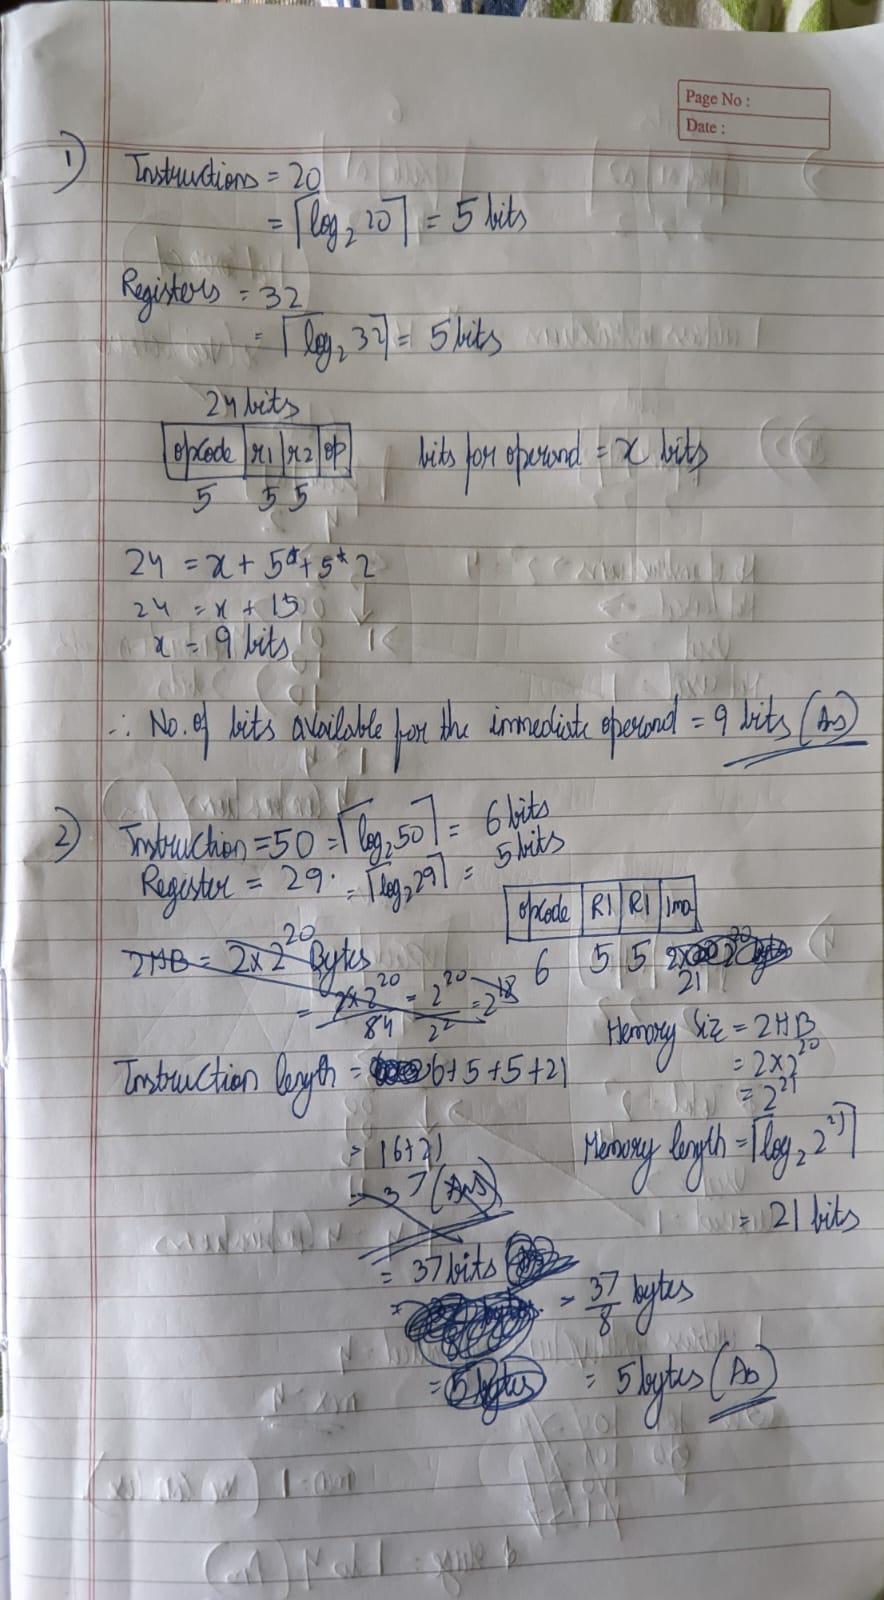 Page No :
Date :
1) Instructions = 20
= ⌈log₂ 20⌉ = 5 bits
Registers = 32
= ⌈log₂ 32⌉ = 5 bits
24 bits
opcode | r1 | r2 | op
bits for operand = x bits
5 5 5
24 = x + 5* + 5* 2
24 = x + 15
x = 9 bits
∴ No. of bits available for the immediate operand = 9 bits (As)
2) Instruction = 50 = ⌈log₂ 50⌉ = 6 bits
Register = 29. = ⌈log₂ 29⌉ = 5 bits
opcode | R1 | R1 | Imo
6 5 5 21
2MB = 2 x 2²⁰ Bytes
= 2 x 2²⁰ / 84 = 2²⁰ / 2² = 2¹⁸
Memory size = 2MB
= 2 x 2²⁰
= 2²¹
Instruction length = 6 + 5 + 5 + 21
= 16 + 21
= 37 (Ans)
Memory length = ⌈log₂ 2²¹⌉
= 21 bits
= 37 bits
= 37/8 bytes
= 5 bytes = 5 bytes (As)